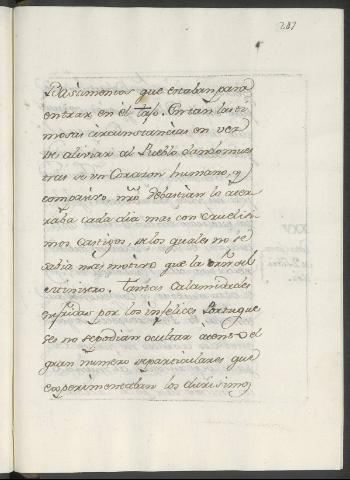 287
Bastimentos que estaban para
entrar en el tajo. En tan lasti
mosas circunstancias en vez
de aliviar al Pueblo dando mues
tras de un Corazon humano, y
compasivo, Dn Sebastian lo
cada dia mas con cruelisi
mos castigos, de los quales no se
sabia mas motivo que la orn del
estimisero. Tantas Calamidades
sufridas por los infelices Portugue
ses no se podian ocultar á
gran numero de particulares que
experimentaban los durisimos